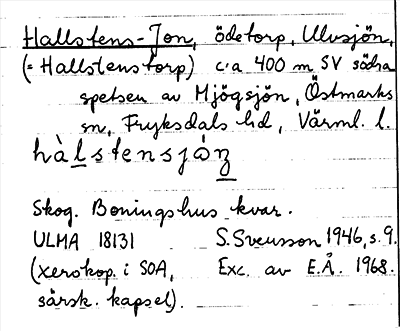 Hallstens-Jon, ödetorp, Ulvsjön,
(= Hallstenstorp) c:a 400 m SV södra
spetsen av Mjögsjön, Östmarks
sn, Fryksdals hd, Värml. l.
hàlstensjón
Skog. Boningshus kvar.
ULMA 18131 S. Svensson 1946, s. 9.
(xerokop. i SOA, Exc. av E.Å. 1968.
särsk. kapsel).